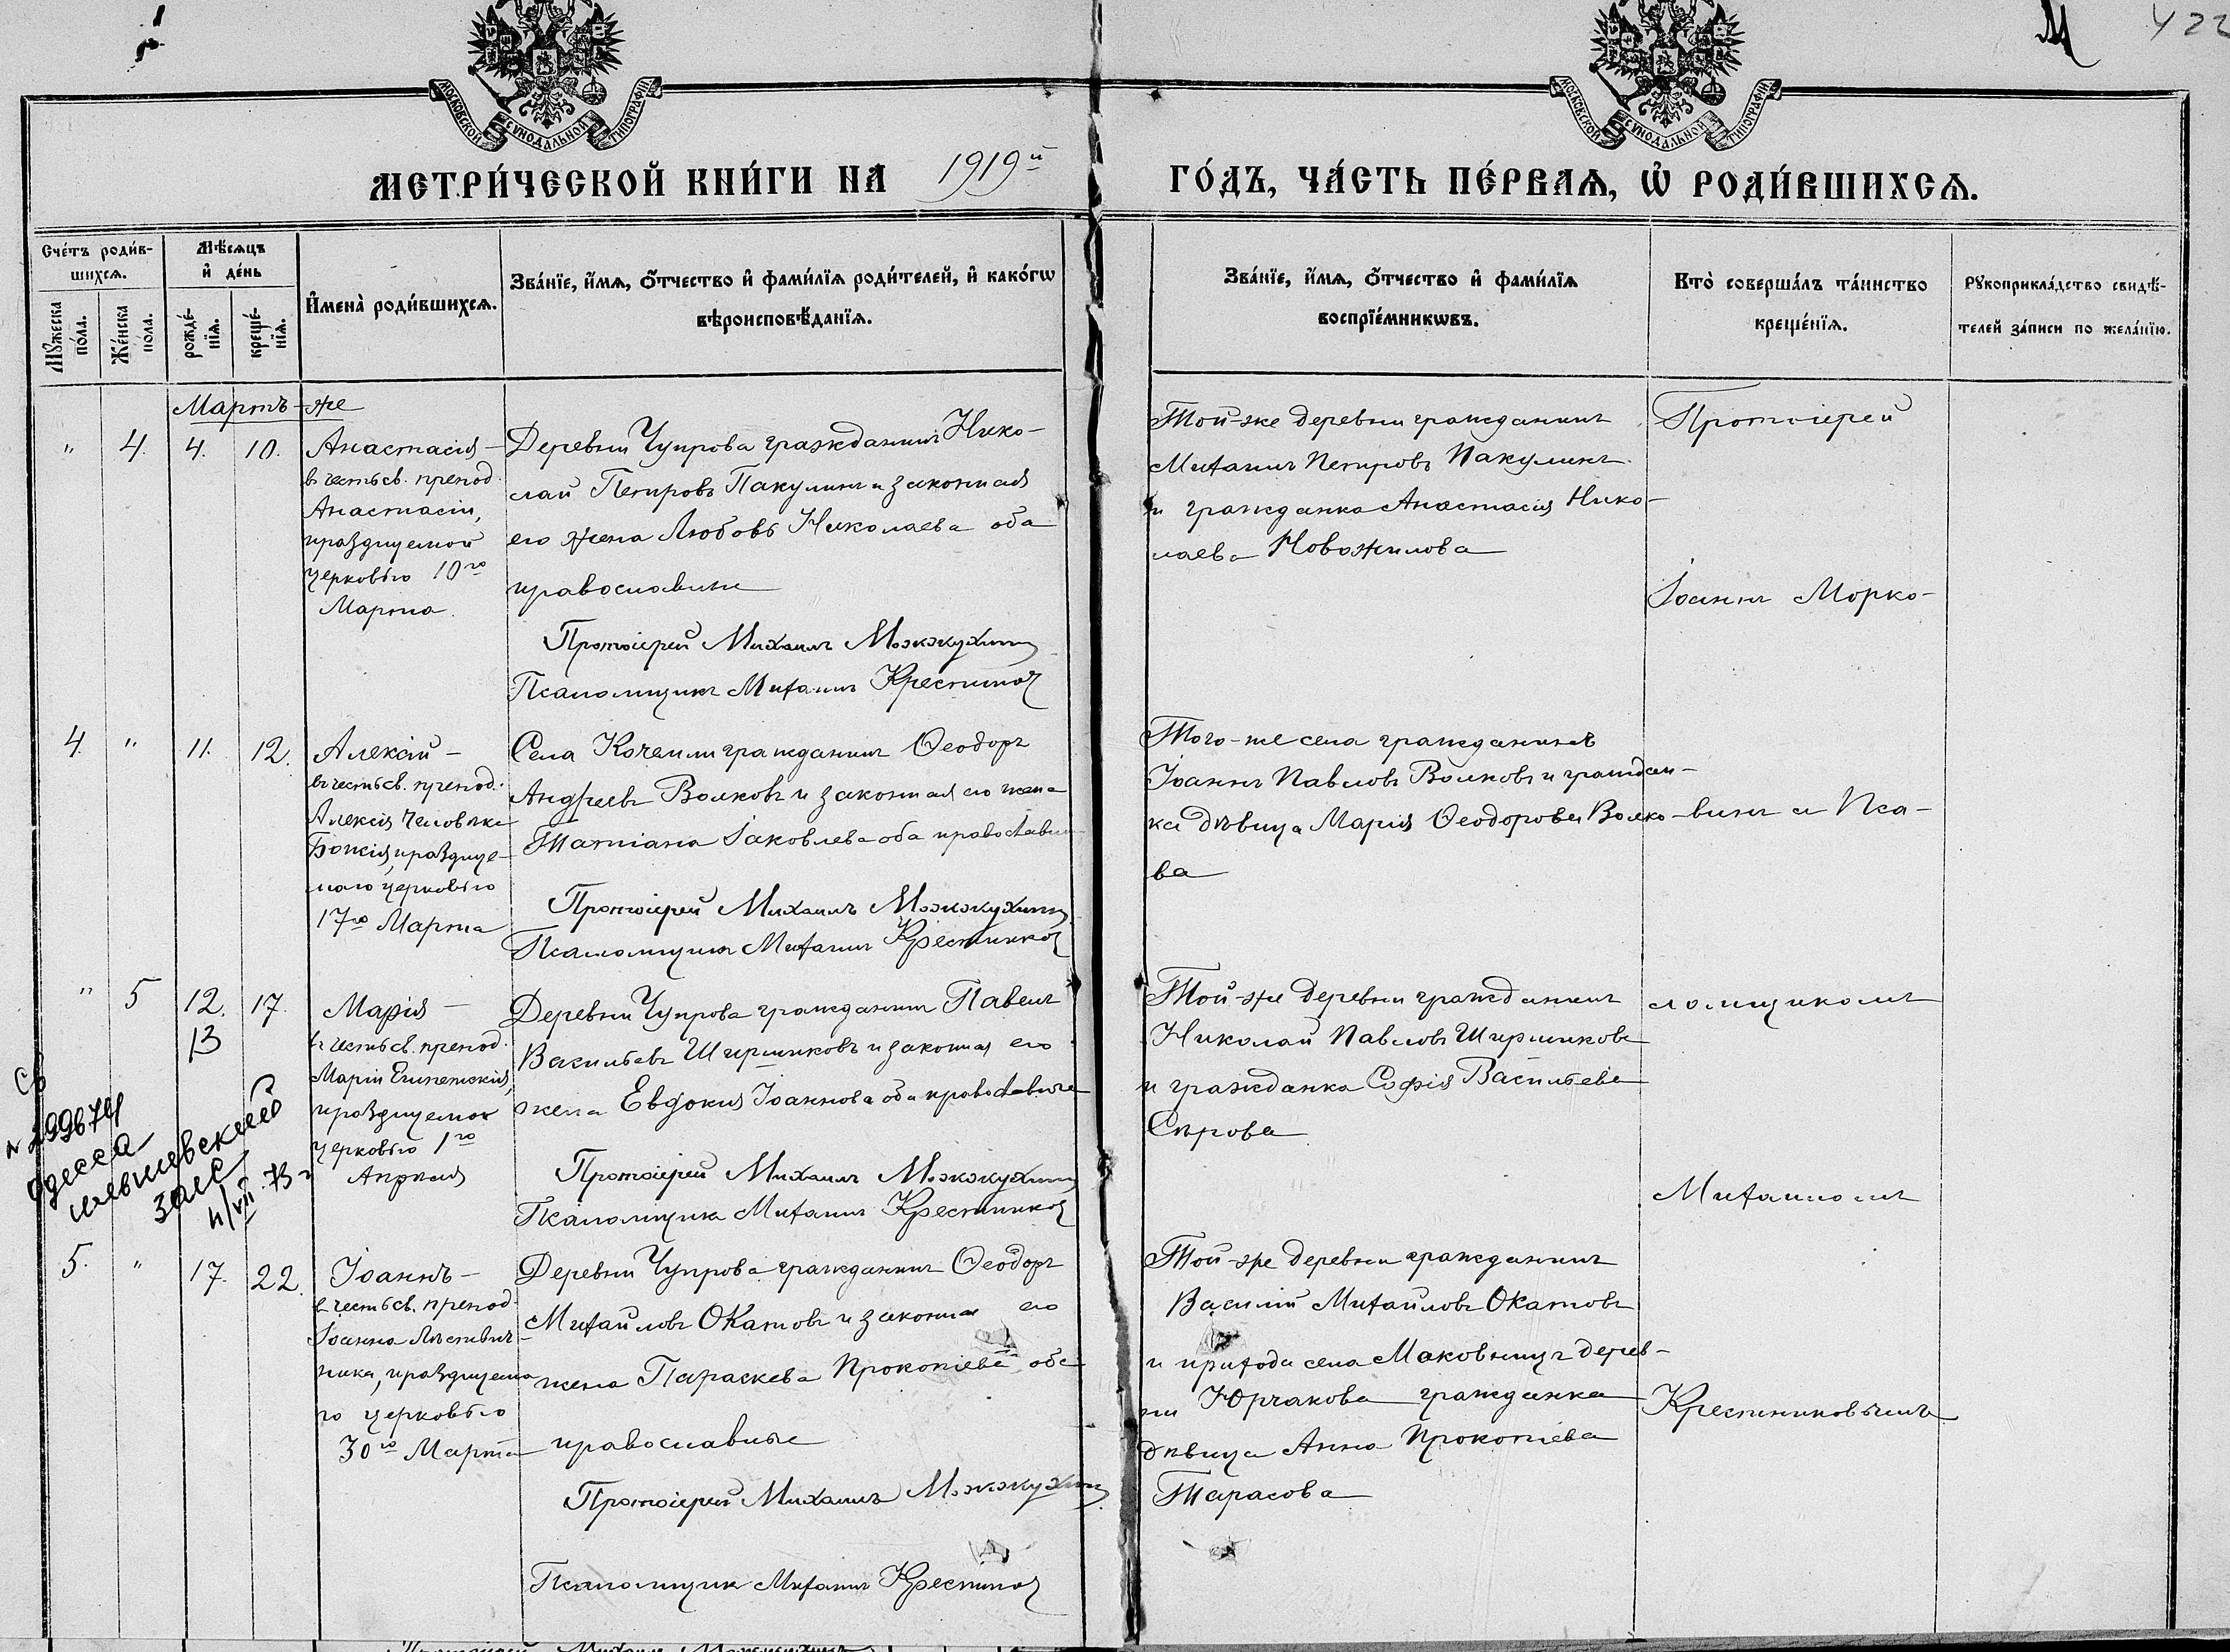 422
МОСКОВСКОЙ СѴНОДАЛЬНОЙ ТИПОГРАФІИ
МОСКОВСКОЙ СѴНОДАЛЬНОЙ ТИПОГРАФІИ
МЕТРИ́ЧЕСКОЙ КНИ́ГИ НА 1919й ГО́ДЪ, ЧА́СТЬ ПЕ́РВАЯ, Ѡ РОДИ́ВШИХСЯ.
Сче́тъ роди́в-
шихся.
Мꙋ́жеска
по́ла.
Же́нска
по́ла.
Мѣ́сяцъ
и҆ де́нь
рожде́-
нїя.
креще́-
нїя.
И҆мена̀ роди́вшихся.
Зва́нїе, и҆́мя, ѻ҆́тчество и҆ фами́лїя роди́телей, и҆ како́гѡ
вѣроисповѣ́данїя.
Зва́нїе, и҆́мя, ѻ҆́тчество и҆ фами́лїя
воспрїе́мникѡвъ.
Кто̀ соверша́лъ та́инство
креще́нїя.
Рꙋкоприкла́дство свидѣ́-
телей за́писи по жела́нїю.
Мартъ-же
" 4. 4. 10.
Анастасія -
въ честь св. препод.
Анастасіи,
празднуемой
церковію 10го
Марта.
Деревни Чупрова гражданинъ Нико-
лай Петровъ Пакулинъ и законная
его жена Любовь Николаева оба
православные
Протоіерей Михаилъ Можжухинъ
Псаломщикъ Михаилъ Крестниковъ
Той-же деревни гражданинъ
Михаилъ Петровъ Пакулинъ
и гражданка Анастасія Нико-
лаева Новожилова
Протоіерей
Іоаннъ Морко-
4. " 11. 12.
Алексій -
въ честь св. препод.
Алексія человѣка
Божія, праздну-
маго церковію
17го Марта
Села Кочемли гражданинъ Ѳеодоръ
Андреевъ Волковъ и законная его жена
Татіана Іаковлева оба православные
Протоіерей Михаилъ Можжухинъ
Псаломщикъ Михаилъ Крестниковъ
Того-же села гражданинъ
Іоаннъ Павловъ Волковъ и граждан-
ка дѣвица Марія Ѳеодорова Волко-
ва
-винъ и Пса-
" 5 12. 17.
13
Марія -
въ честь св. препод.
Маріи Египетскія,
празднуемой
церковію 1го
Апрѣля
Деревни Чупрова гражданинъ Павелъ
Васильевъ Ширшиковъ и законная его
жена Евдокія Іоаннова оба православные
Протоіерей Михаилъ Можжухинъ
Псаломщикъ Михаилъ Крестниковъ
Той-же деревни гражданинъ
Николай Павловъ Ширшиковъ
и гражданка Софія Васильева
Сѣрова
ломщикомъ
Михаиломъ
Одесса
загс
5. " 17. 22.
Іоаннъ -
въ честь св. препод.
Іоанна Лѣствич-
ника, празднуема-
го церковію
30го Марта
Деревни Чупрова гражданинъ Ѳеодоръ
Михайловъ Окатовъ и законная его
жена Параскева Прокопіева оба
православные
Протоіерей Михаилъ Можжухинъ
Псаломщикъ Михаилъ Крестниковъ
Той-же деревни гражданинъ
Василій Михайловъ Окатовъ
и прихода села Маковницъ дерев-
ни Юрчакова гражданка
дѣвица Анна Прокопіева
Тарасова
Крестниковымъ